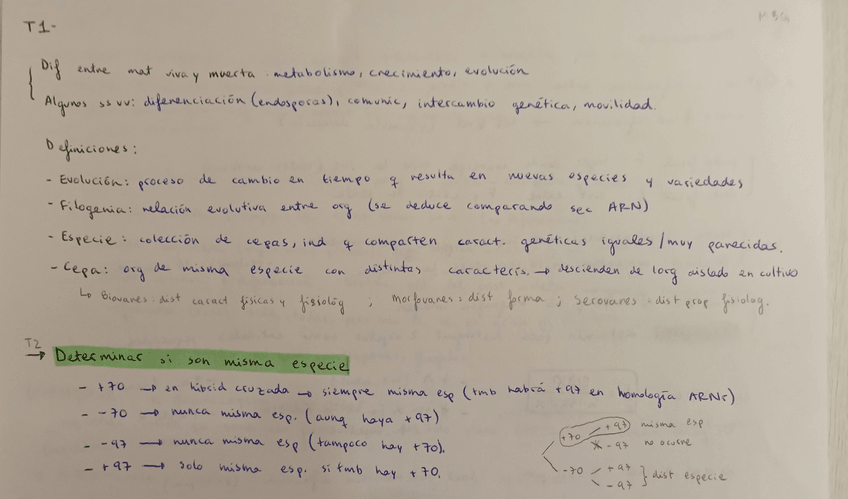 MBGA
T1-
Dif entre mat viva y muerta. metabolismo, crecimiento, evolución
Algunos ss vv: diferenciación (endosporas), comunic, intercambio genética, movilidad.
Definiciones:
- Evolución: proceso de cambio en tiempo q resulta en nuevas especies y variedades
- Filogenia: relación evolutiva entre org (se deduce comparando sec ARN)
- Especie: colección de cepas, ind q comparten caract. genéticas iguales/muy parecidas.
- Cepa: org de misma especie con distintas caracterís. → descienden de 1 org aislado en cultivo
↳ Biovares: dist caract físicas y fisiológ ; morfovares: dist forma ; serovares: dist prop fisiolog.
T2
→ Determinar si son misma especie
- +70 → en hibrid cruzada → siempre misma esp (tmb habrá +97 en homología ARNr)
- -70 → nunca misma esp. (aunq haya +97)
- -97 → nunca misma esp (tampoco hay +70).
- +97 → solo misma esp. si tmb hay +70.
+70 +97 misma esp
-97 no ocurre
-70 +97 } dist especie
-97